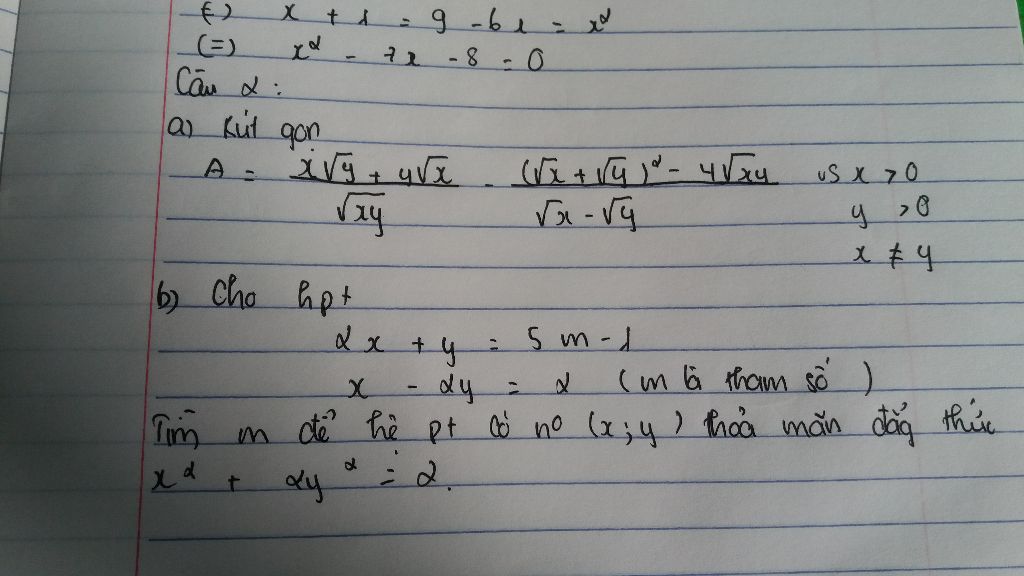 (=) x + 1 = 9 - 6x = x²
(=) x² - 7x - 8 = 0
Câu 2:
a) Rút gọn
A = (x√y + y√x)/√xy - ((√x + √y)² - 4√xy)/(√x - √y) vs x > 0
y > 0
x ≠ y
b) Cho hpt
2x + y = 5m - 1
x - 2y = 2 (m là tham số)
Tìm m để hệ pt có no (x; y) thoả mãn đẳg thức
x² + 2y² = 2.